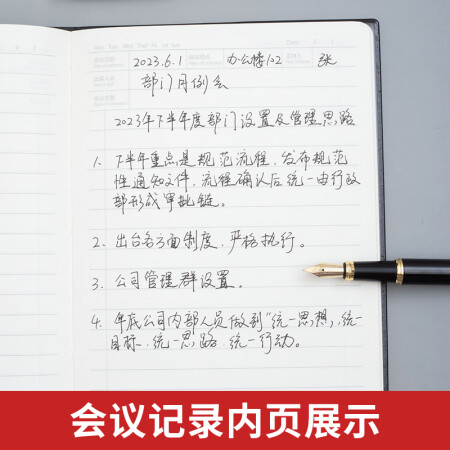 2023.6.1 办公楼102 张
部门月例会
2023年下半年度部门设置及管理思路
1. 下半年重点是规范流程，发布规范
性通知文件，流程确认后统一由行政
部形成审批链。
2. 出台各方面制度，严格执行。
3. 公司管理群设置。
4. 年底公司内部人员做到"统一思想，统一
目标，统一思路，统一行动。
会议记录内页展示